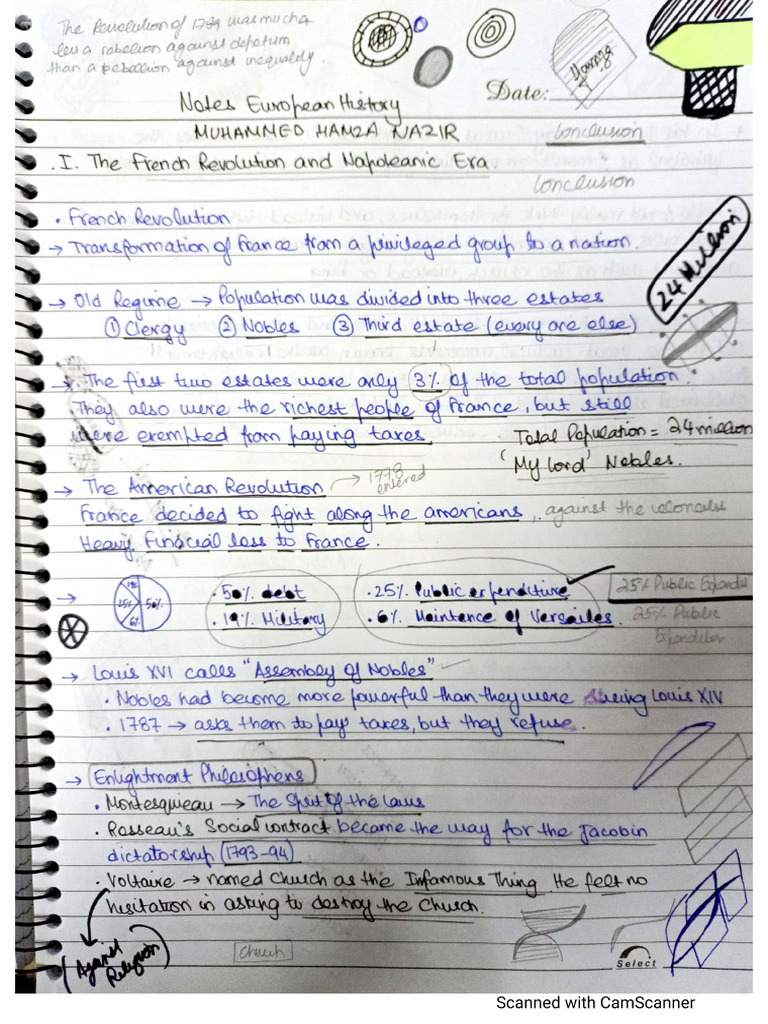 The Revolution of 1789 was much
less a rebellion against depotism
than a rebellion against inequality.
Date:
Notes European History
MUHAMMED HAMZA NAZIR
Conclusion
.I. The French Revolution and Napoleanic Era.
Conclusion
• French Revolution
→ Transformation of France from a privileged group to a nation.
24 Million
→ Old Regime → Population was divided into three estates
① Clergy ② Nobles ③ Third estate (every one else)
→ The first two estates were only 3% of the total population.
They also were the richest people of France, but still
were exempted from paying taxes.
Total Population = 24 million
'My Lord' Nobles.
→ The American Revolution → 1778 entered
France decided to fight along the americans, against the colonalist
Heavy Finacial loss to France.
→ 1% 25% 50% 6%
• 50% debt • 25% Public expenditure
25% Public Expendi
• 19% Military • 6% Maintance of Versailes.
25% Public
Expenditure
→ Louis XVI calls "Assembly of Nobles"
• Nobles had become more powerful than they were during Louis XIV
• 1787 → asks them to pays taxes, but they refuse.
→ Enlightment Philosophers
• Montesquieau → The Spirit of the Laws
• Rosseau's Social contract became the way for the Jacobin
dictatorship (1793-94)
• Voltaire → named Church as the Infamous Thing. He felt no
hisitation in asking to destroy the Church.
(Against
Religion)
Church
Select
Scanned with CamScanner